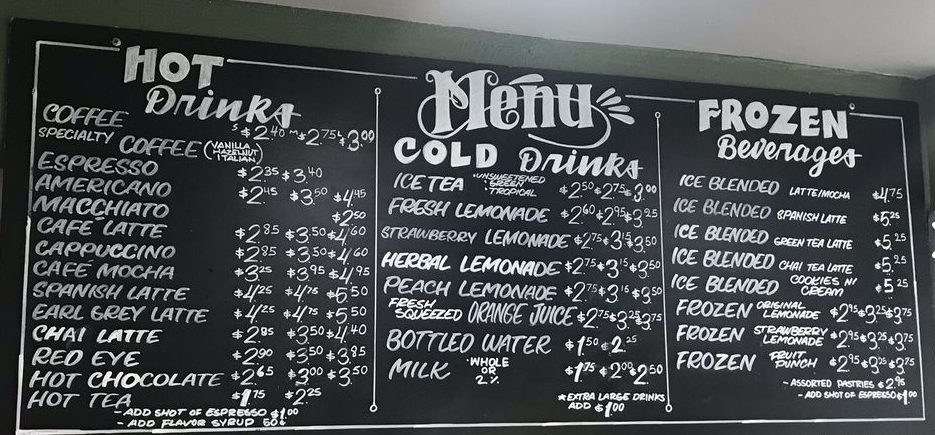 HOT
Drinks
COFFEE S $2.40 M $2.75 L $3.00
SPECIALTY COFFEE (VANILLA HAZELNUT ITALIAN)
ESPRESSO $2.35 $3.40
AMERICANO $2.45 $3.50 $4.45
MACCHIATO $2.50
CAFÉ LATTE $2.85 $3.50 $4.60
CAPPUCCINO $2.85 $3.50 $4.60
CAFÉ MOCHA $3.25 $3.95 $4.95
SPANISH LATTE $4.25 $4.75 $5.50
EARL GREY LATTE $4.25 $4.75 $5.50
CHAI LATTE $2.85 $3.50 $4.40
RED EYE $2.90 $3.50 $3.85
HOT CHOCOLATE $2.65 $3.00 $3.50
HOT TEA $1.75 $2.25
- ADD SHOT OF ESPRESSO $1.00
- ADD FLAVOR SYRUP 50¢
Menu
COLD Drinks
ICE TEA • UNSWEETENED • GREEN • TROPICAL $2.50 $2.75 $3.00
FRESH LEMONADE $2.60 $2.95 $3.25
STRAWBERRY LEMONADE $2.75 $3.15 $3.50
HERBAL LEMONADE $2.75 $3.15 $3.50
PEACH LEMONADE $2.75 $3.15 $3.50
FRESH SQUEEZED ORANGE JUICE $2.75 $3.25 $3.75
BOTTLED WATER $1.50 $2.25
MILK • WHOLE OR 2% $1.75 $2.00 $2.50
*EXTRA LARGE DRINKS
ADD $1.00
FROZEN
Beverages
ICE BLENDED LATTE/MOCHA $4.75
ICE BLENDED SPANISH LATTE $5.25
ICE BLENDED GREEN TEA LATTE $5.25
ICE BLENDED CHAI TEA LATTE $5.25
ICE BLENDED COOKIES N' CREAM $5.25
FROZEN ORIGINAL LEMONADE $2.95 $3.25 $3.75
FROZEN STRAWBERRY LEMONADE $2.95 $3.25 $3.75
FROZEN FRUIT PUNCH $2.95 $3.25 $3.75
- ASSORTED PASTRIES $2.95
- ADD SHOT OF ESPRESSO $1.00